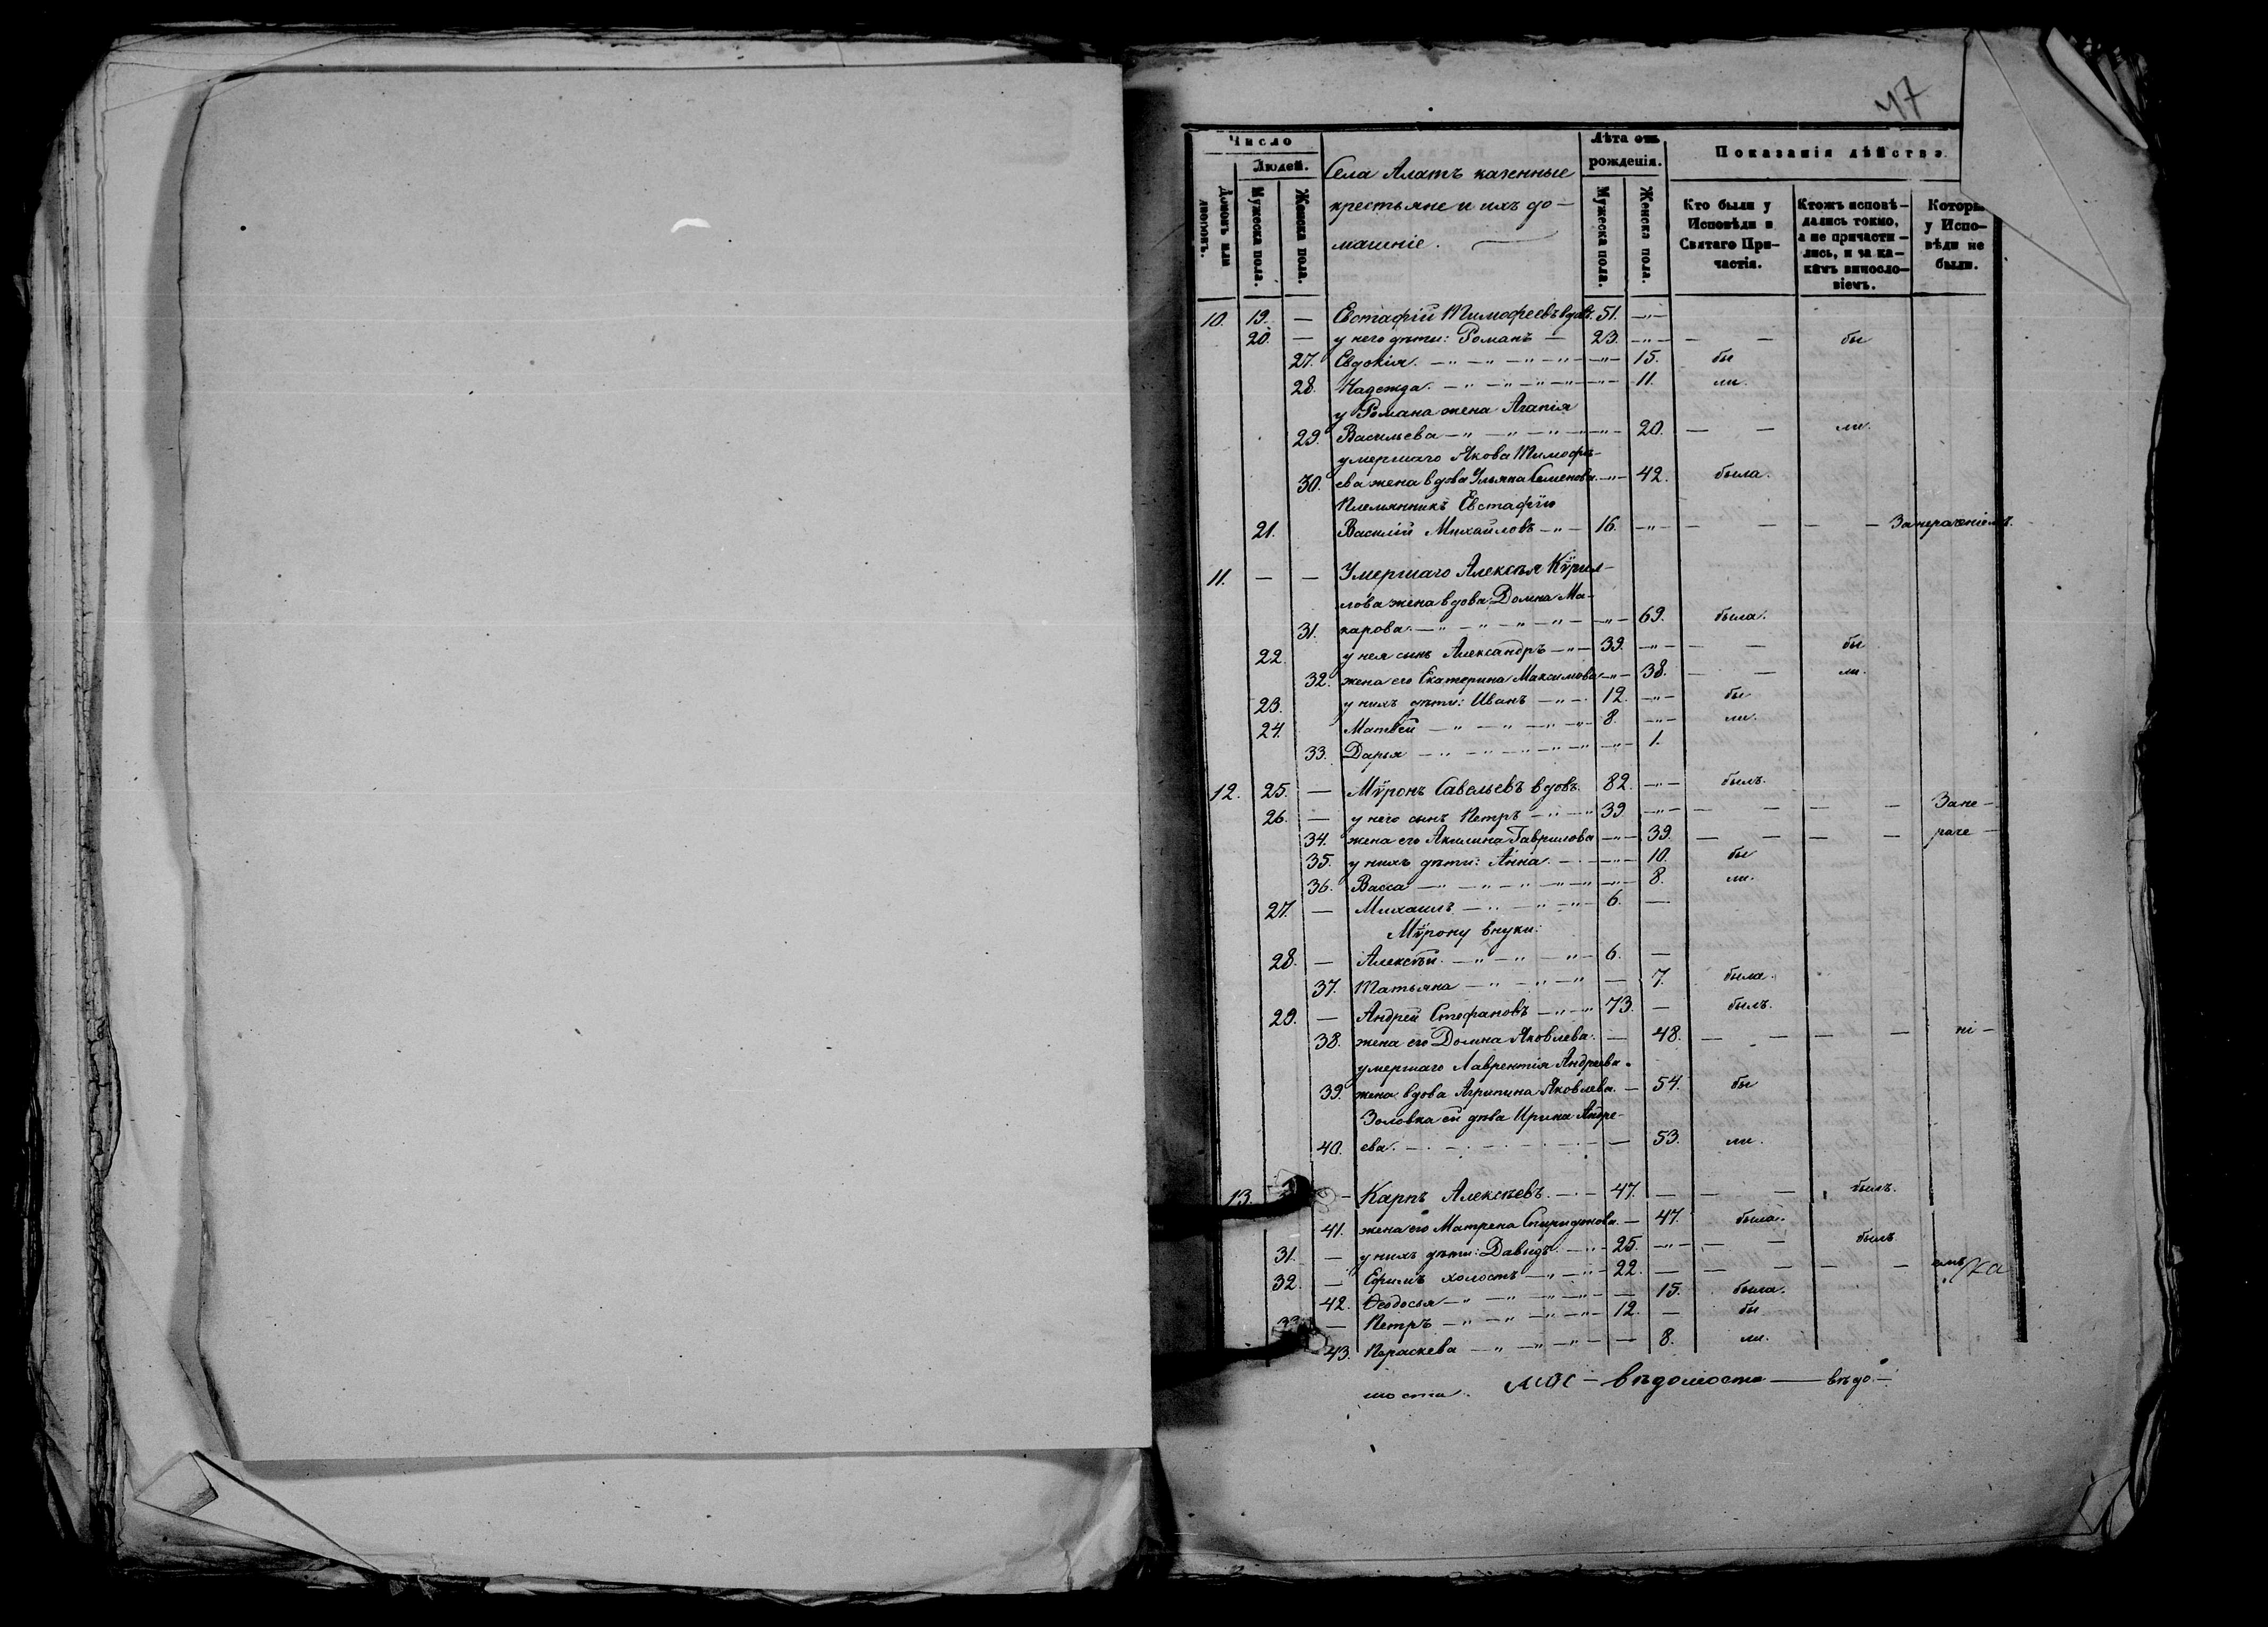 47
Число
Людей.
Домовъ или дворовъ.
Мужеска пола.
Женска пола.
Села Алатъ казенные
крестьяне и ихъ до-
машніе.
Лѣта отъ рожденія.
Мужеска пола.
Женска пола.
Показанія дѣйстве
Кто были у Исповѣди и Святаго При- частія.
Ктожъ исповѣ- дались токмо, а не причасти- лись, и за ка- кимъ винословіемъ.
Которы у Испо- вѣди не были.
10. 19. — Евстафій Тимофеевъ вдовъ. 51. —"—
20. — у него дѣти: Романъ — 23. —"— — — бы
27. Евдокія. —"— 15. бы
28. Надежда. —"— 11. ли.
у Романа жена Агапія
29. Васильева —"— 20. — — ли.
умершаго Якова Тимофѣ-
30. ева жена вдова Ульяна Семенова —"— 42. была.
Племянникъ Евстафію
21. Василій Михайловъ —"— 16. —"— — — — — Занераченіемъ.
11. — — Умершаго Алексѣя Кѵрил-
лова жена вдова Домна Ма-
31. карова. —"— 69. была.
22. у нея сынъ Александръ —"— 39. —"— — — бы
32. жена его Екатерина Максимова —"— 38. — — ли.
23. у нихъ дѣти: Иванъ —"— 12. —"— бы
24. Матвѣй —"— 8. —"— ли.
33. Дарья —"— 1.
12. 25. — Мѵронъ Савельевъ вдовъ. 82. —"— былъ.
26. — у него сынъ Петръ —"— 39. —"— — — — — Зане-
34. жена его Акилина Гаврилова —"— 39. — — — — раче-
35. у нихъ дѣти: Анна. —"— 10. бы
36. Васса —"— 8. ли.
27. — Михаилъ —"— 6. —
Мѵрону внуки:
28. — Алексѣй. —"— 6. —
37. Татьяна —"— 7. была.
29. — Андрей Стефановъ —"— 73. — былъ.
38. жена его Домна Яковлева. — 48. — — — — ні-
умершаго Лаврентія Андреева
39. жена вдова Агрипина Яковлева. — 54. бы
Золовка ей дѣва Ирина Андре-
40. ева. — 53. ли.
13. — Карпъ Алексѣевъ. — 47. — — — былъ.
41. жена его Матрена Спиридонова. — 47. была.
31. — у нихъ дѣти: Давидъ. —"— 25. —"— — — былъ
32. — Ефимъ холостъ —"— 22. — — — — — емъ
42. Ѳеодосья —"— 15. была.
— Петръ —"— 12. — бы
43. Параскева —"— 8. ли.
мости. — вѣдомости — вѣдо-